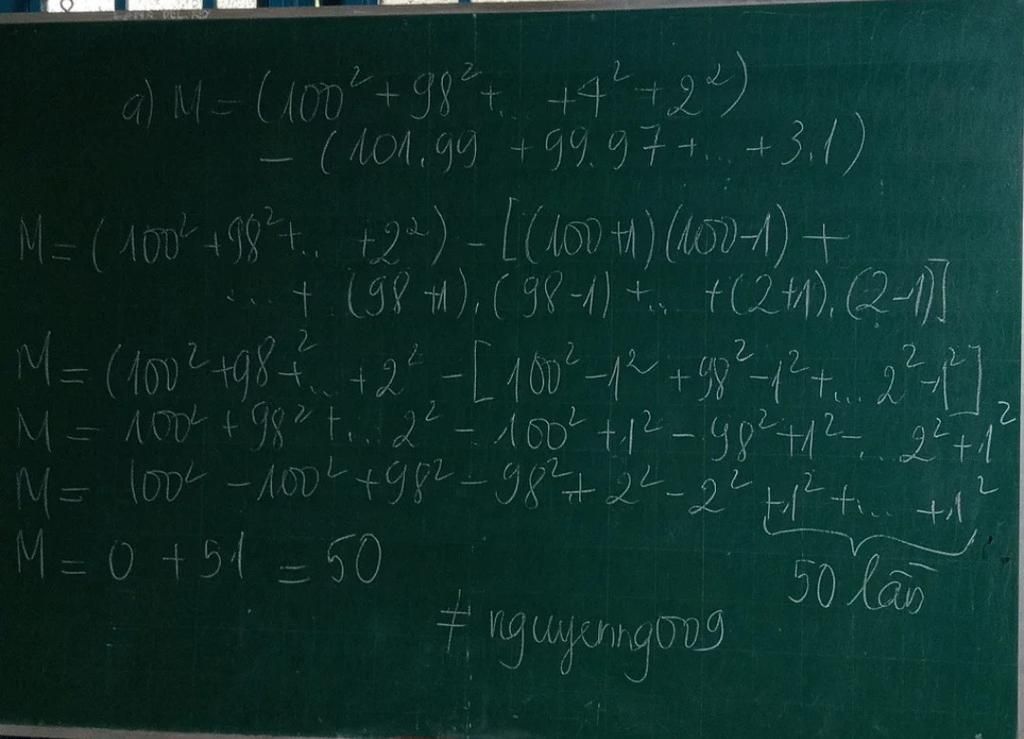 a) M = (100² + 98² + ... + 4² + 2²)
- (101.99 + 99.97 + ... + 3.1)
M = (100² + 98² + ... + 2²) - [(100+1)(100-1) +
... + (98+1).(98-1) + ... + (2+1).(2-1)]
M = (100² + 98² + ... + 2² - [100² - 1² + 98² - 1² + ... 2² - 1²]
M = 100² + 98² + ... 2² - 100² + 1² - 98² + 1² - ... 2² + 1²
M = 100² - 100² + 98² - 98² + 2² - 2² + 1² + ... + 1²
M = 0 + 51 = 50
50 lần
# nguyenng009